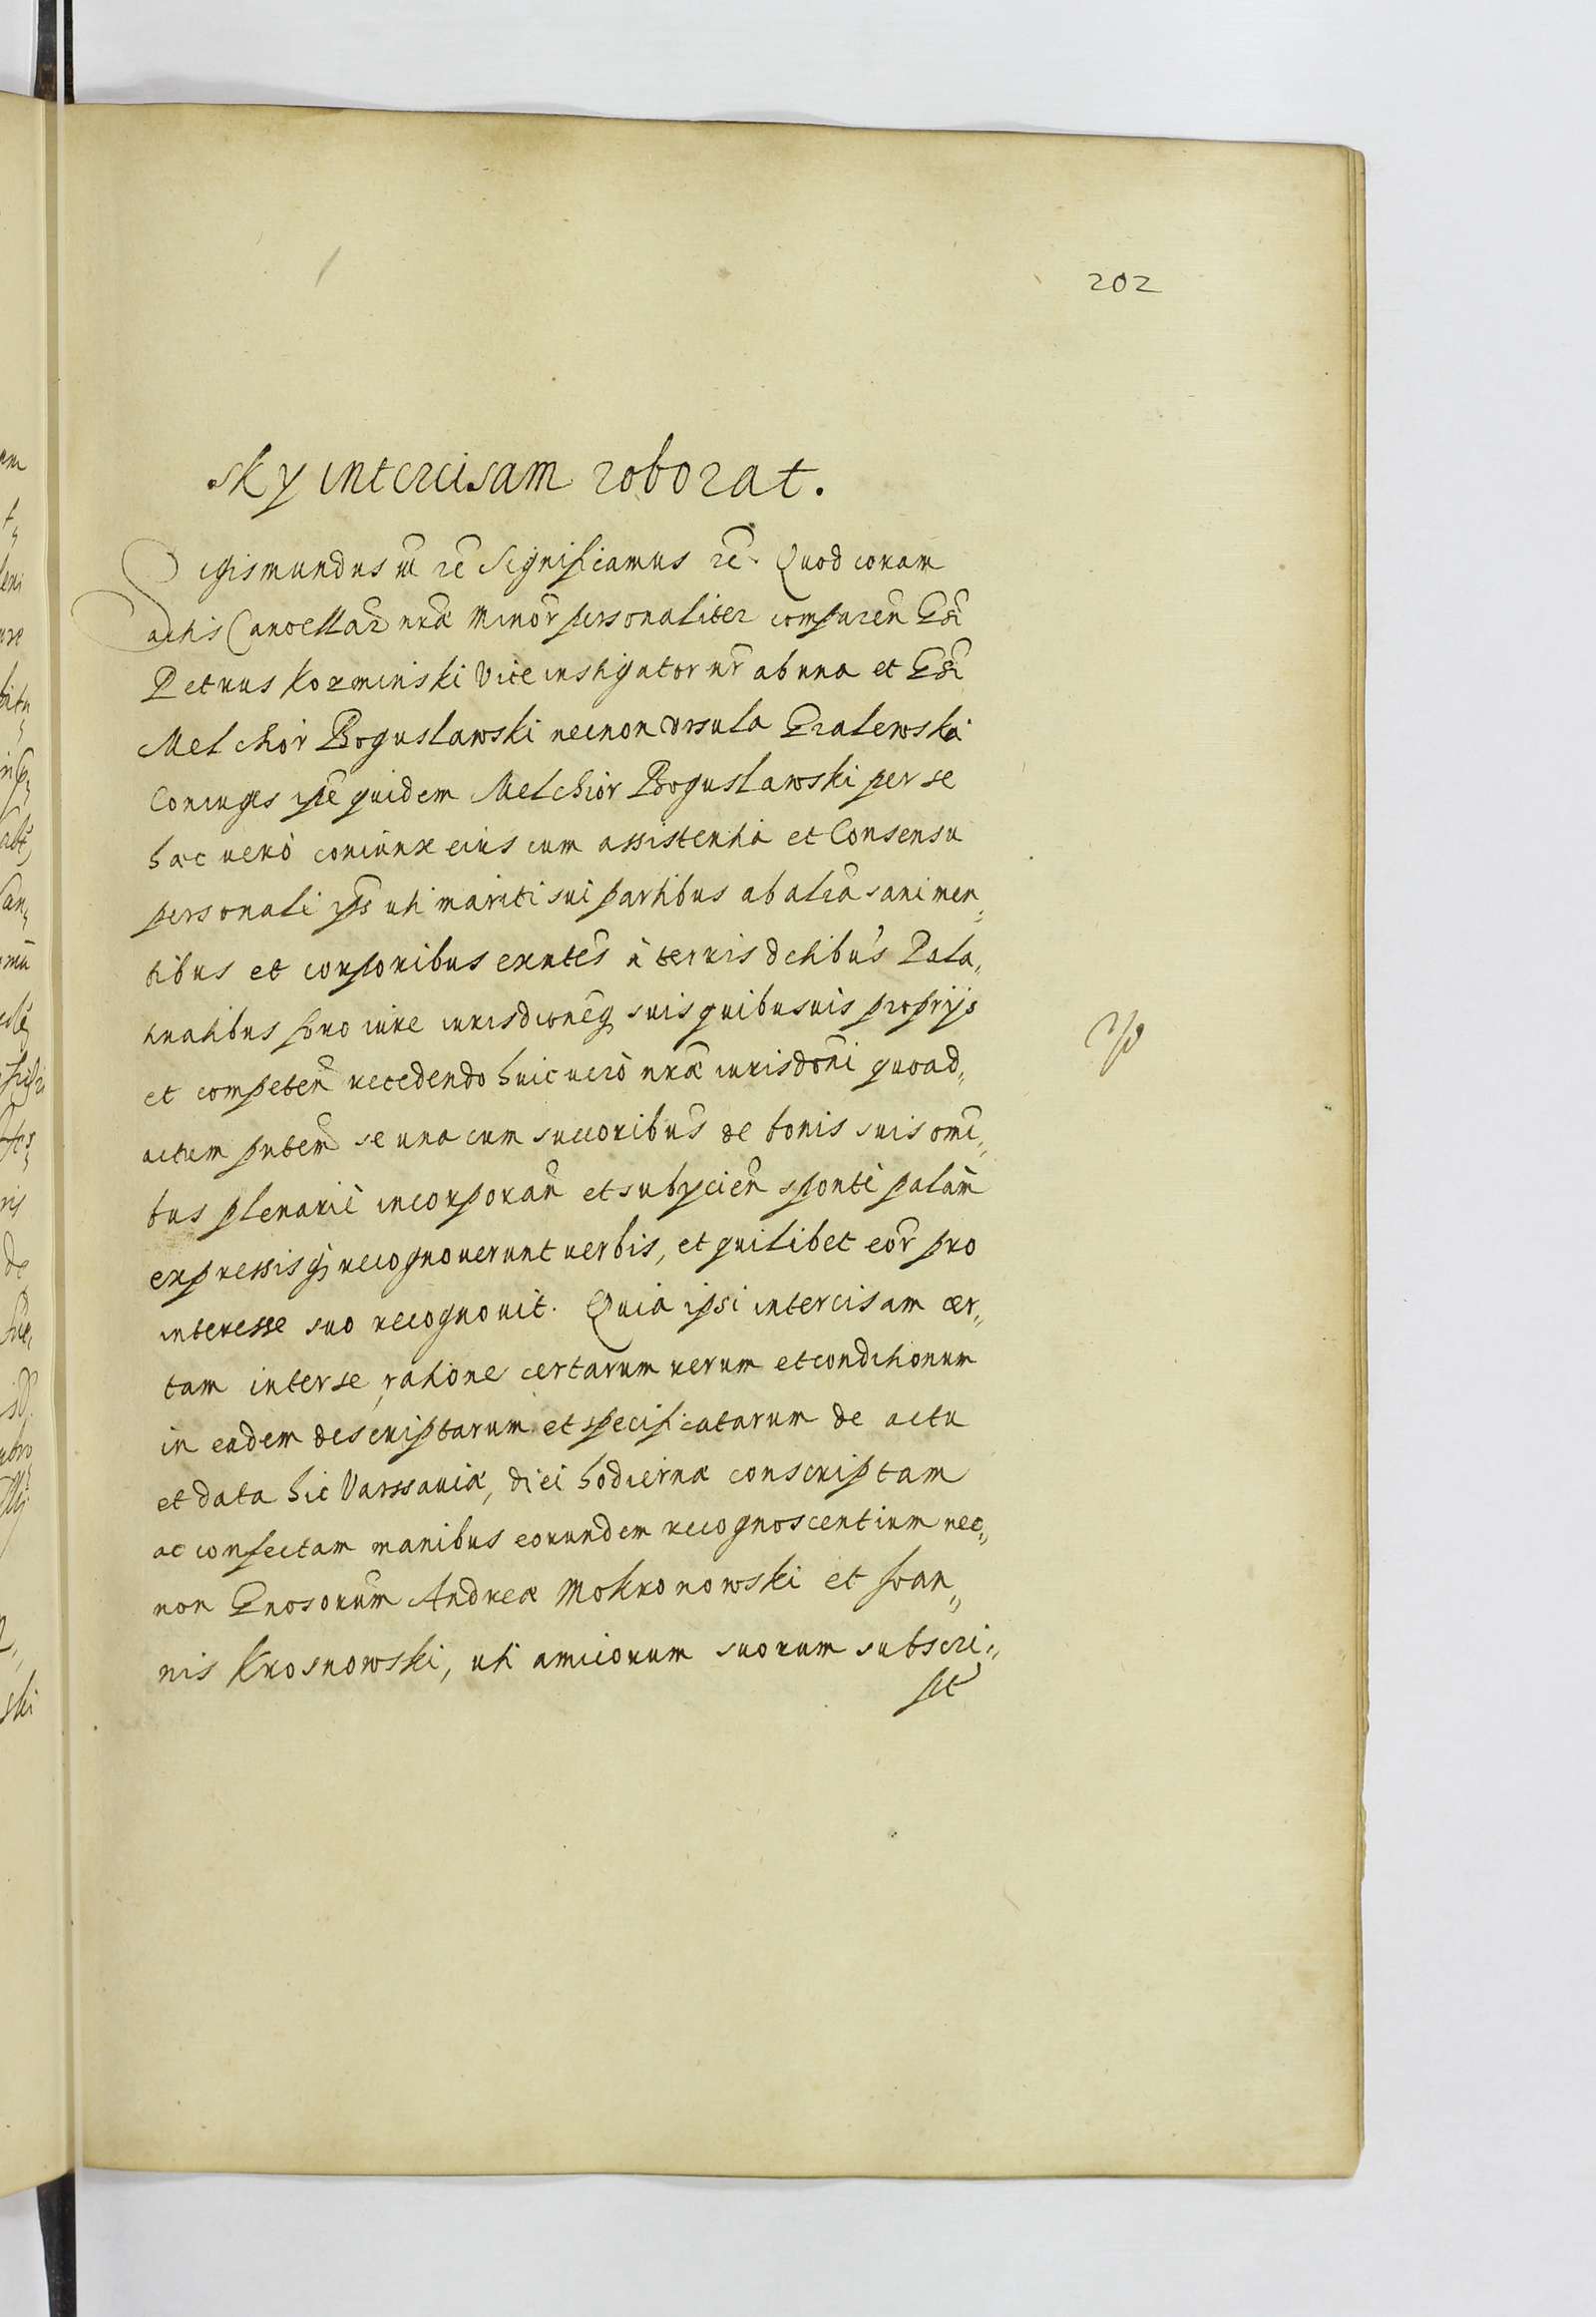 202
sky intercisam roborat.
Sigismundus III etc Significamus etc. Quod coram
actis Cancellar nrae Minor personaliter comparen Gsi
Petrus Kozminski Vice instigator nr ab una et Gsi
Melchior Boguslawski necnon Ursula Gralewska
Coniuges ipe quidem Melchior Boguslawski per se
haec uerò coniunx eius cum assistentia et Consensu
personali ips uti mariti sui partibus ab altra sani men„
tibus et corporibus exntes à terris dctibus Pala„
tinalibus foro iure iurisdcioneq suis quibusuis proprijs
et competen recedendo huic uerò nrae iurisdcni quoad„
actum pntem se una cum succoribus de bonis suis omi„
bus plenariè incorporan et subycien spontè palàm
expressisq recognouerunt uerbis, et quilibet eor pro
interesse suo recognouit. Quia ipsi intercisam cer„
tam inter se ratione certarum rerum et conditionum
in eadem descriptarum et specificatarum de actu
et data hic Varssauiae, diei hodiernae conscriptam
ac confectam manibus eorundem recognoscentium nec„
non Gnosorum Andreae Mokronowski et Joan„
nis Krosnowski, uti amicorum suorum subscri„
pt